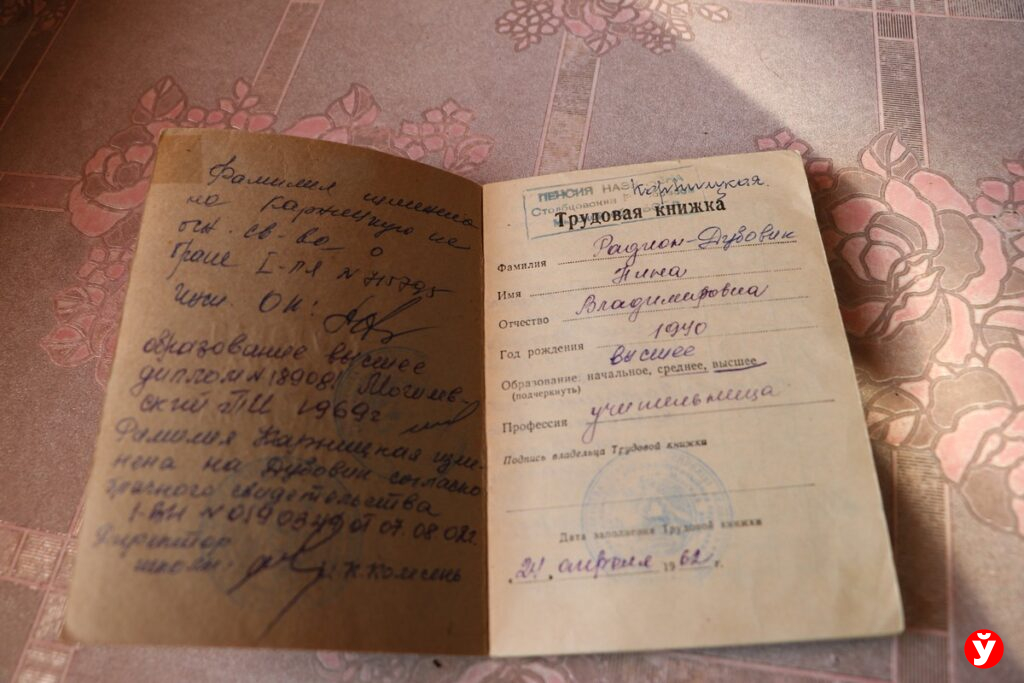 Фамилия изменена
на Каржицкую на
осн. св-ва о
браке I-ПЯ № 715795
Инсп. ОК:
образование высшее
диплом № 18908 Могилев-
ский ПИ 1969г
Фамилия Каржицкая изме-
нена на Дубовик согласно
брачного свидетельства
I-ВН № 0190349 от 07.08.02г.
Директор
школы:
ПЕНСИЯ НАЗНАЧЕНА
Столбцовский
Каржицкая.
Трудовая книжка
Фамилия Радион-Дубовик
Имя Нина
Отчество Владимировна
Год рождения 1940
высшее
Образование: начальное, среднее, высшее
(подчеркнуть)
Профессия учительница
Подпись владельца Трудовой книжки
Дата заполнения Трудовой книжки
"24" апреля 1962 г.
ў